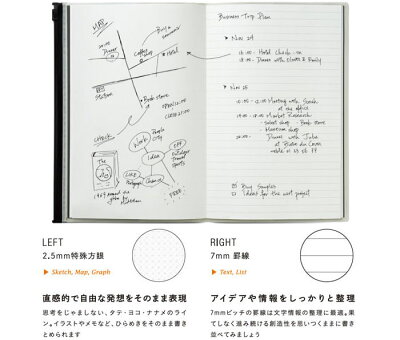 MAP
20:00
Dinner
Coffee
shop
Buy a
souvenir
Hotel
Station
Book store
OPEN 10:00
CLOSE 20:00
CHECK
The
Work
People
City
Idea
OFF
Travel
Sports
Change
FREE
Business Trip Plan
Nov 24
18:00 - Hotel Check-in
19:00 - Dinner with Family
Nov 25
10:00 - 12:00 Meeting with Sarah
at the office
Market Research
Select shop - Book store
- Museum shop
20:00 - Dinner with Julie
Buy Samples
Ideas for the next project
LEFT
2.5mm特殊方眼
▶ Sketch, Map, Graph
直感的で自由な発想をそのまま表現
思考をじゃましない、タテ・ヨコ・ナナメのライ
ン。イラストやメモなど、ひらめきをそのまま書き
とめられます
RIGHT
7mm 罫線
▶ Text, List
アイデアや情報をしっかりと整理
7mmピッチの罫線は文字情報の整理に最適。果
てしなく進み続ける創造性を思いつくままに書き
並べてみましょう